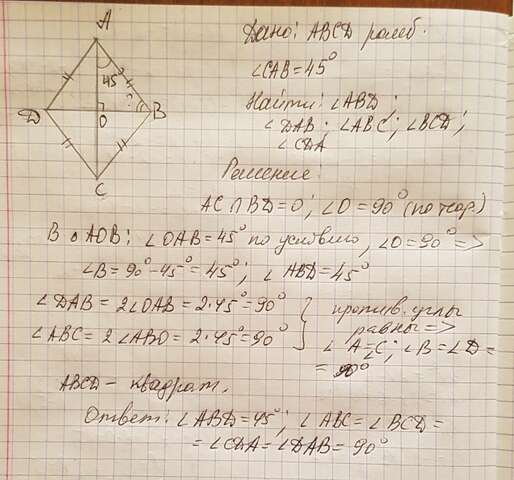 A
45°
D
O
B
C
Дано: ABCD ромб.
∠CAB=45°
Найти: ∠ABD;
∠DAB; ∠ABC; ∠BCD;
∠CDA
Решение:
AC∩BD=O; ∠O=90° (по теор.)
В △AOB: ∠OAB=45° по условию, ∠O=90° =>
∠B=90°-45°=45°; ∠ABD=45°
∠DAB=2∠OAB=2·45°=90°
∠ABC=2∠ABO=2·45°=90°
против. углы
равны =>
∠A=∠C; ∠B=∠D=
=90°
ABCD – квадрат.
Ответ: ∠ABD=45°; ∠ABC=∠BCD=
=∠CDA=∠DAB=90°